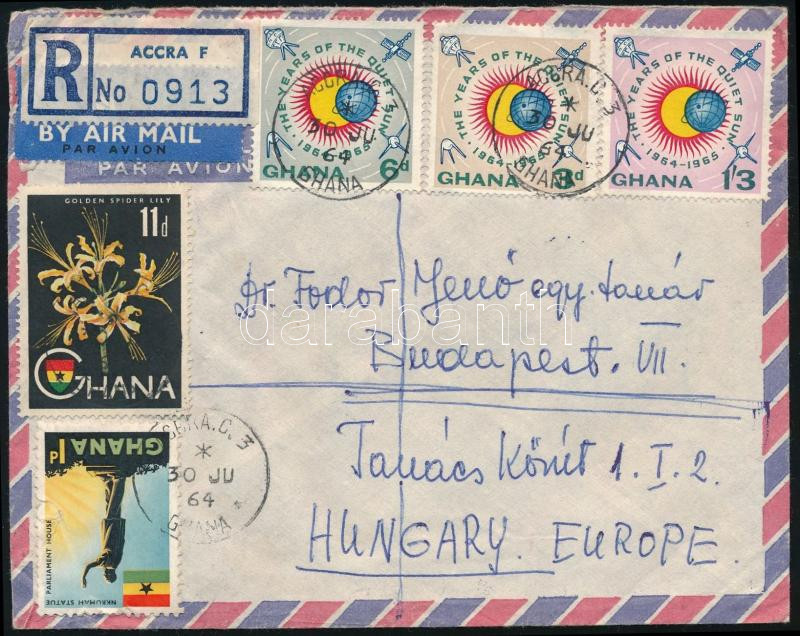 R
ACCRA F
No 0913
BY AIR MAIL
PAR AVION
PAR AVION
THE YEARS OF THE QUIET SUN
1964-1965
GHANA 6d
THE YEARS OF THE QUIET SUN
1964-1965
GHANA 3d
THE YEARS OF THE QUIET SUN
1964-1965
GHANA 1'3
ACCRA.C.3
30 JU
64
GHANA
ACCRA.C.3
30 JU
64
GHANA
GOLDEN SPIDER LILY
11d
GHANA
Dr. Fodor Jenő egy. tanár
Budapest. VII.
Tanács Körút 1. I. 2.
HUNGARY. EUROPE.
darabanth
ACCRA.C.3
30 JU
64
GHANA
GHANA 1d
PARLIAMENT HOUSE
NKRUMAH STATUE